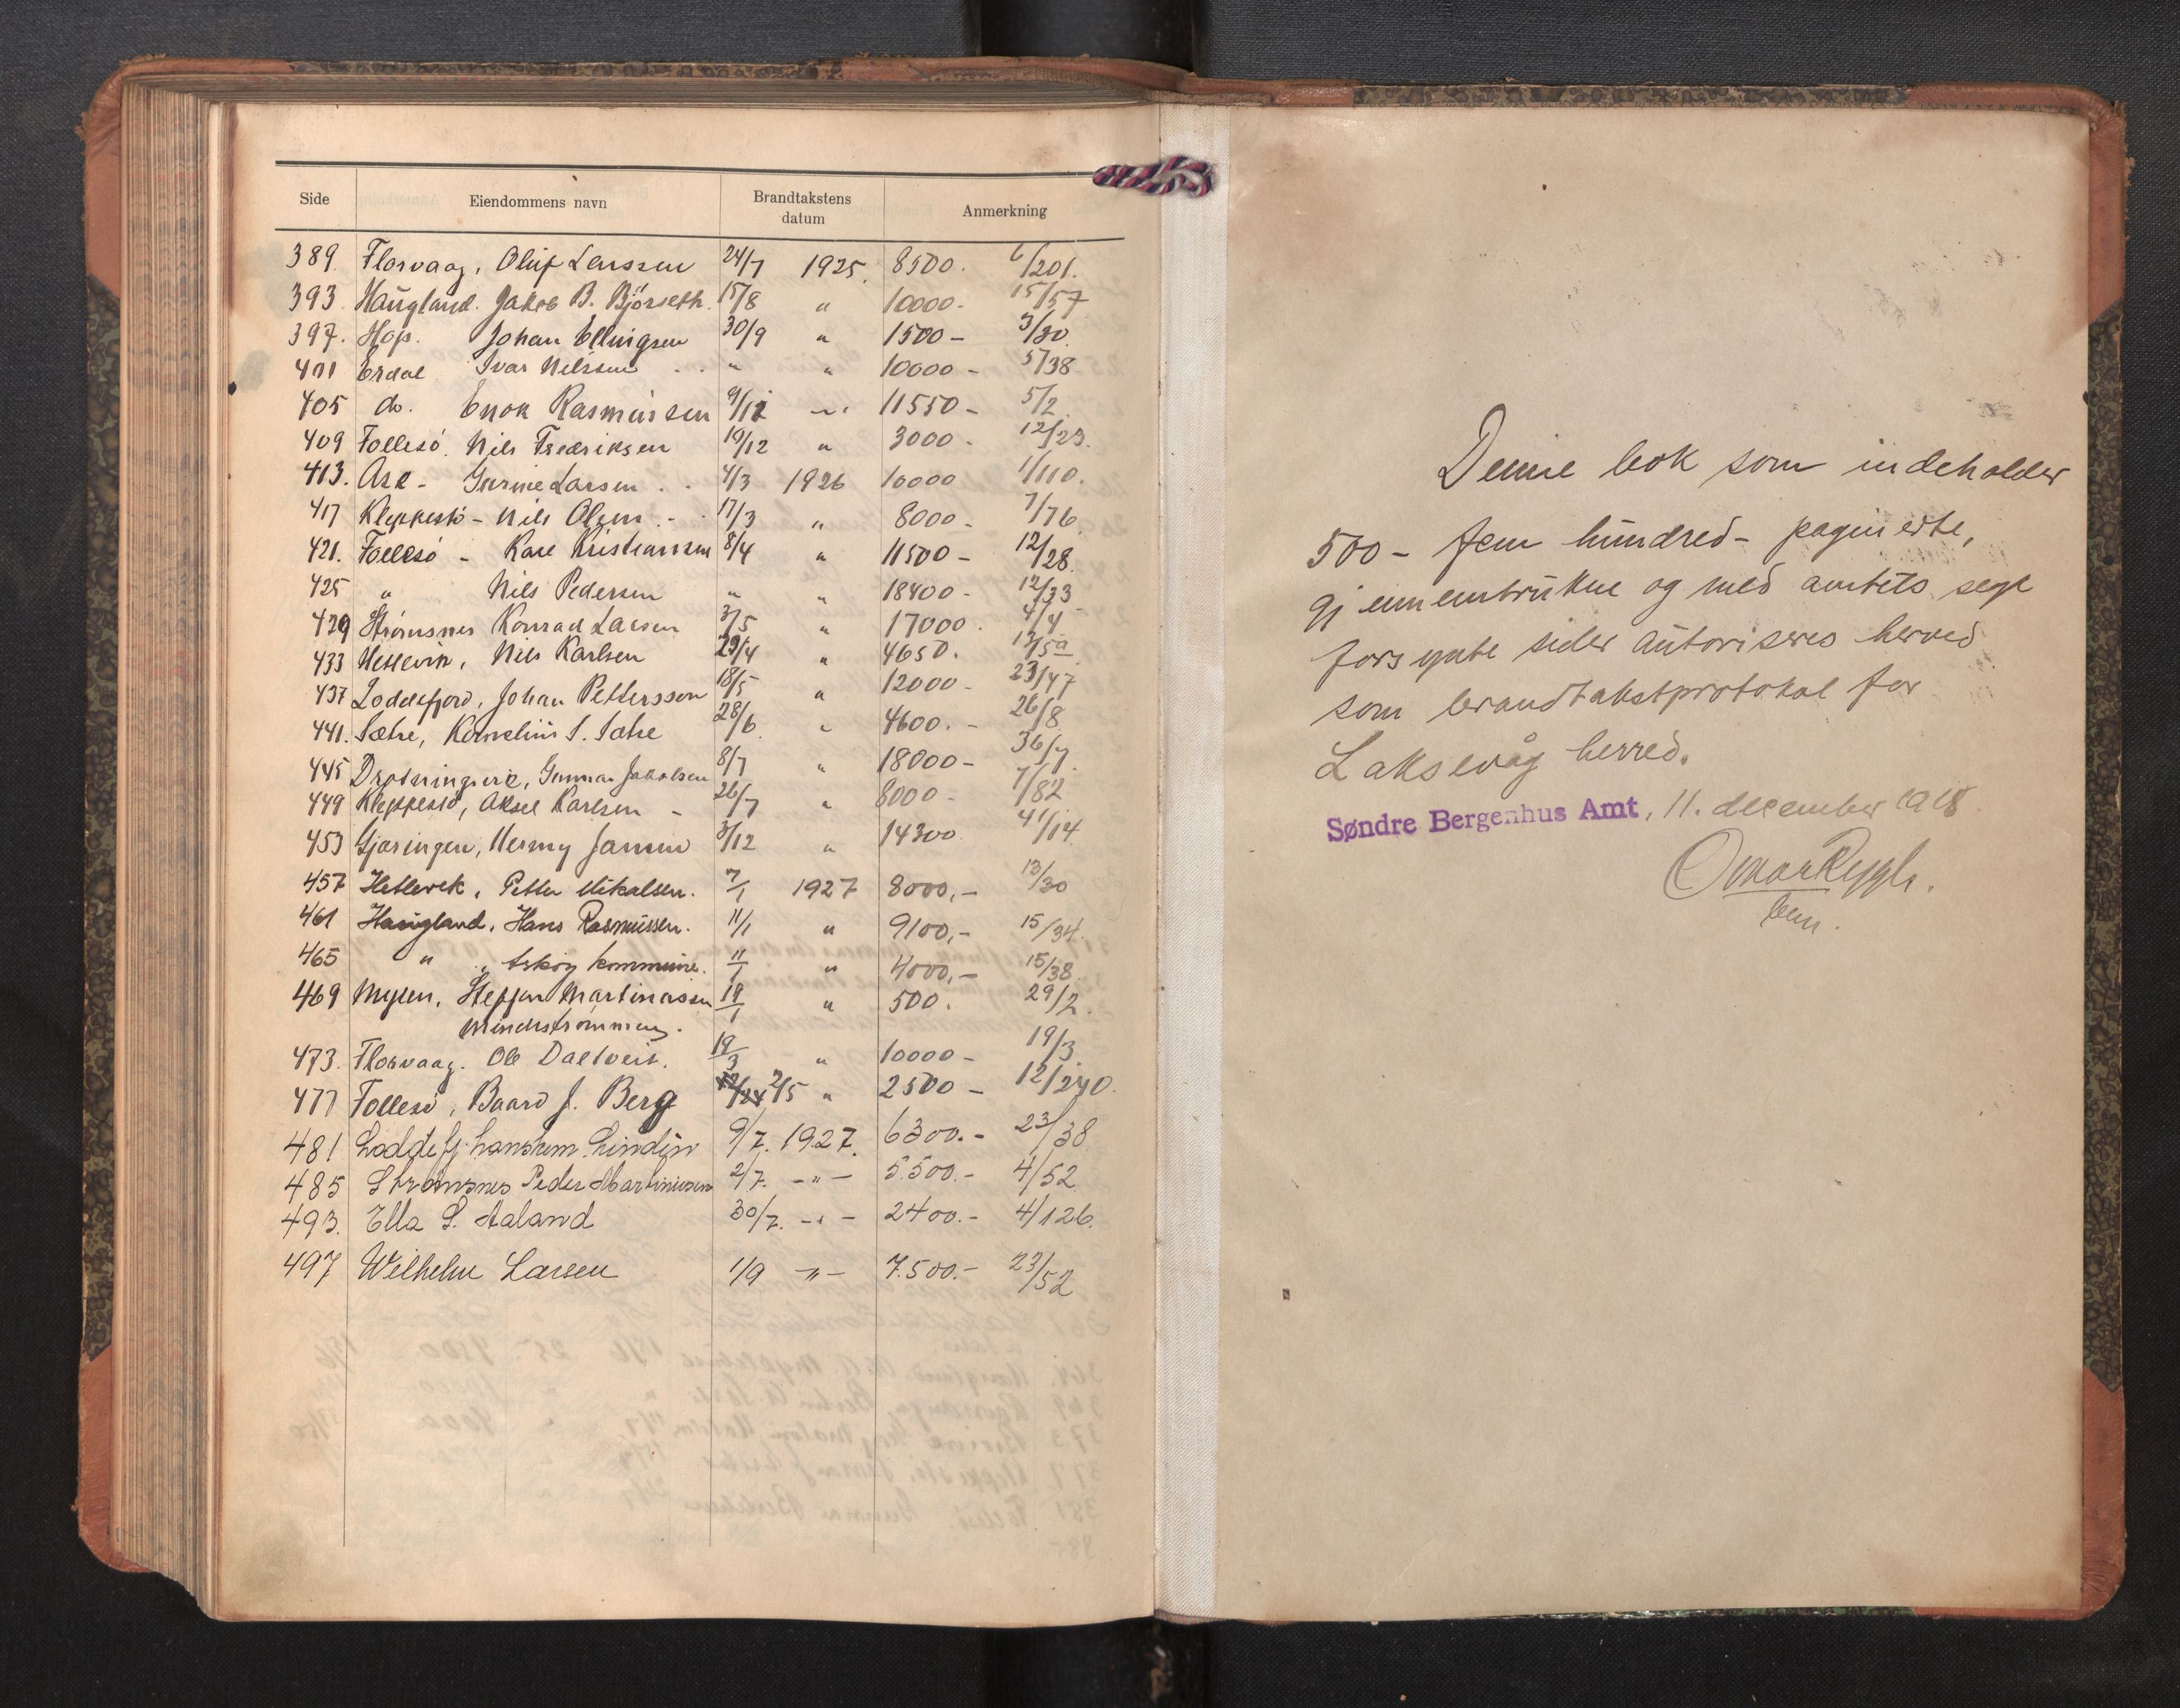 Side Eiendommens navn Brandtakstens datum Anmerkning
389. Florvaag, Oluf Larssen 24/7 1925. 8500. 6/201.
393. Haugland. Jakob B. Björseth. 15/8 " 10000.- 15/57
397. Hop. Johan Ellingsen 30/9 " 1500 - 3/30.
401 Erdal Ivar Nilssen . . " " 10000 - 5/38
405 do. Enok Rasmussen 9/12 -"- 11550 - 5/2.
409 Follesö. Nils Fredriksen 19/12 " 3000 - 12/23.
413. Ask - Larsen . . 4/3 1926 10000 1/110.
417 Kleppestö - Nils Olsen . - 17/3 " 8000 - 7/76
421. Follesö - Karl Kristiansen 8/4 " 11500 - 12/28.
425 " Nils Pedersen " " 18400 - 12/33
429 Strömsnes Konrad Larsen 3/5 " 17000. 4/4
433 Hetlevik, Nils Karlsen 29/4 " 4650.
437 Loddefjord, Johan Pettersson 18/5 " 12000 - 23/47
441. Sætre, Kornelius S. Sætre 28/6. " 4600. - 26/8
445 Drotningvik, Gunnar Jakobsen 8/7 " 18000 - 36/7.
449 Kleppestö, Aksel Karlsen - 26/7 " 8000 - 7/82
453 Gjæringen, Hermy Jansen 3/12 " 14300. 41/14.
457 Hetlevik, Petter Mikalsen. 7/1 1927 8000,- 13/30
461 Haugland, Hans Rasmussen. 11/1 " 9100,- 15/34.
465 " " Askøy kommune. 11/1 " 4000,- 15/38
469 Myren, Steffen Martinussen 19/1 " 500. 29/2.
Mindeströmmen.
473. Florvaag. Ole Daltveit. 19/3 " 10000 - 19/3.
477 Follesö, Baard J. Berg 2/5 " 2500 - 12/240.
481 Loddefj. Lindøv 9/7. 1927. 6300.- 23/38
485 Strömsnes Peder Martinussen 2/7. -"- 5.500.- 4/52
493. Ella S. Aaland 30/7. -"- 2400.- 4/126.
497 Wilhelm Larsen 1/9 -"- 7.500.- 23/52
Denne bok som indeholder
500 - fem hundred - paginerte,
gjennemtrukne og med amtets segl
forsynte sider autoriseres herved
som brandtakstprotokol for
Laksevåg herred.
Søndre Bergenhus Amt, 11. december 1918